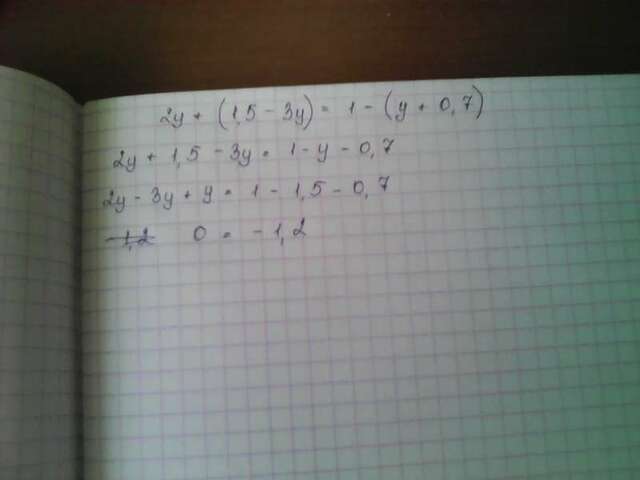 2y + (1,5 - 3y) = 1 - (y + 0,7)
2y + 1,5 - 3y = 1 - y - 0,7
2y - 3y + y = 1 - 1,5 - 0,7
-1,2 0 = -1,2